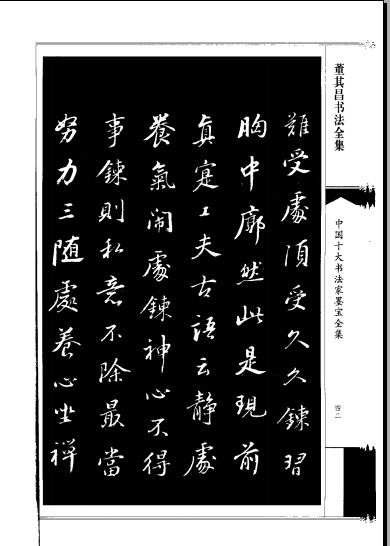 難受處須受久久鍊習
胸中廓然此是現前
真寔工夫古語云靜處
養氣鬧處鍊神心不得
事鍊則私意不除最當
努力三随處養心坐禪
董其昌书法全集
中国十大书法家墨宝全集
四二